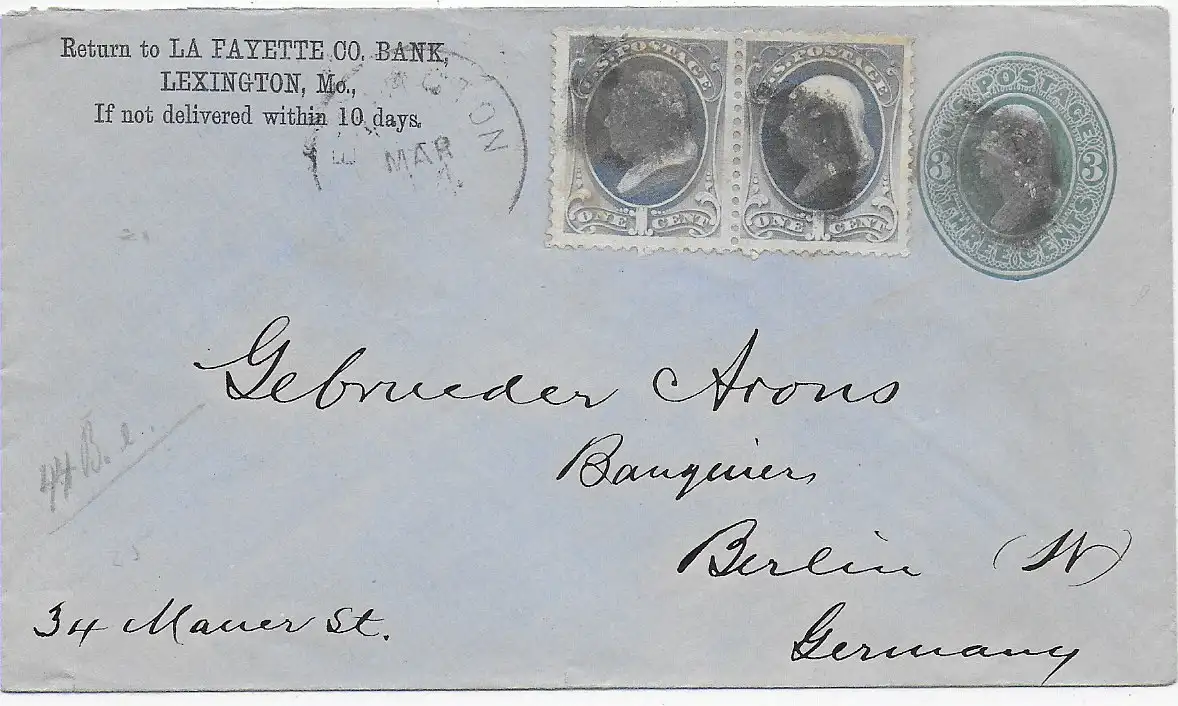 Return to LA FAYETTE CO. BANK,
LEXINGTON, Mo.,
If not delivered within 10 days.
MAR
U.S. POSTAGE
ONE 1 CENT
U.S. POSTAGE
ONE 1 CENT
U.S. POSTAGE
3 3
THREE CENTS
Gebrueder Arons
Banquiers
Berlin (W)
Germany
34 Mauer St.
44 B.
25